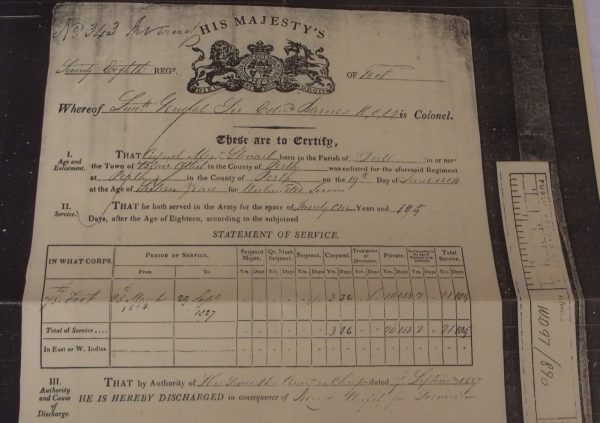 No. 343
HIS MAJESTY'S
Seventy Eighth REGT. OF Foot
Whereof Lieutt General Sir Edwd Barnes K.C.B. is Colonel.
These are to Certify,
I.
Age and
Enlistment.
THAT Corporal Alexr Stewart born in the Parish of Dull in or near
the Town of Blair Athol in the County of Perth was enlisted for the aforesaid Regiment
at Perth in the County of Perth on the 19th Day of June 1804
at the Age of Sixteen Years for Unlimited Service
II.
Service.
THAT he hath served in the Army for the space of Twenty One Years and 105
Days, after the Age of Eighteen, according to the subjoined
STATEMENT OF SERVICE.
IN WHAT CORPS.
PERIOD OF SERVICE.
From To
Serjeant Major.
Qr. Mast. Serjeant.
Serjeant.
Corporal.
Trumpeter or Drummer.
Private.
Total Service.
Yrs. Days Yrs. Days Yrs. Days Yrs. Days Yrs. Days Yrs. Days Yrs. Days
78th Foot 1804 29 Sept 1827
Total of Service....
In East or W. Indies
III.
Authority
and Cause
of
Discharge.
THAT by Authority of dated 7 September 1827
HE IS HEREBY DISCHARGED in consequence of Being Unfit for Service
WO 97/890